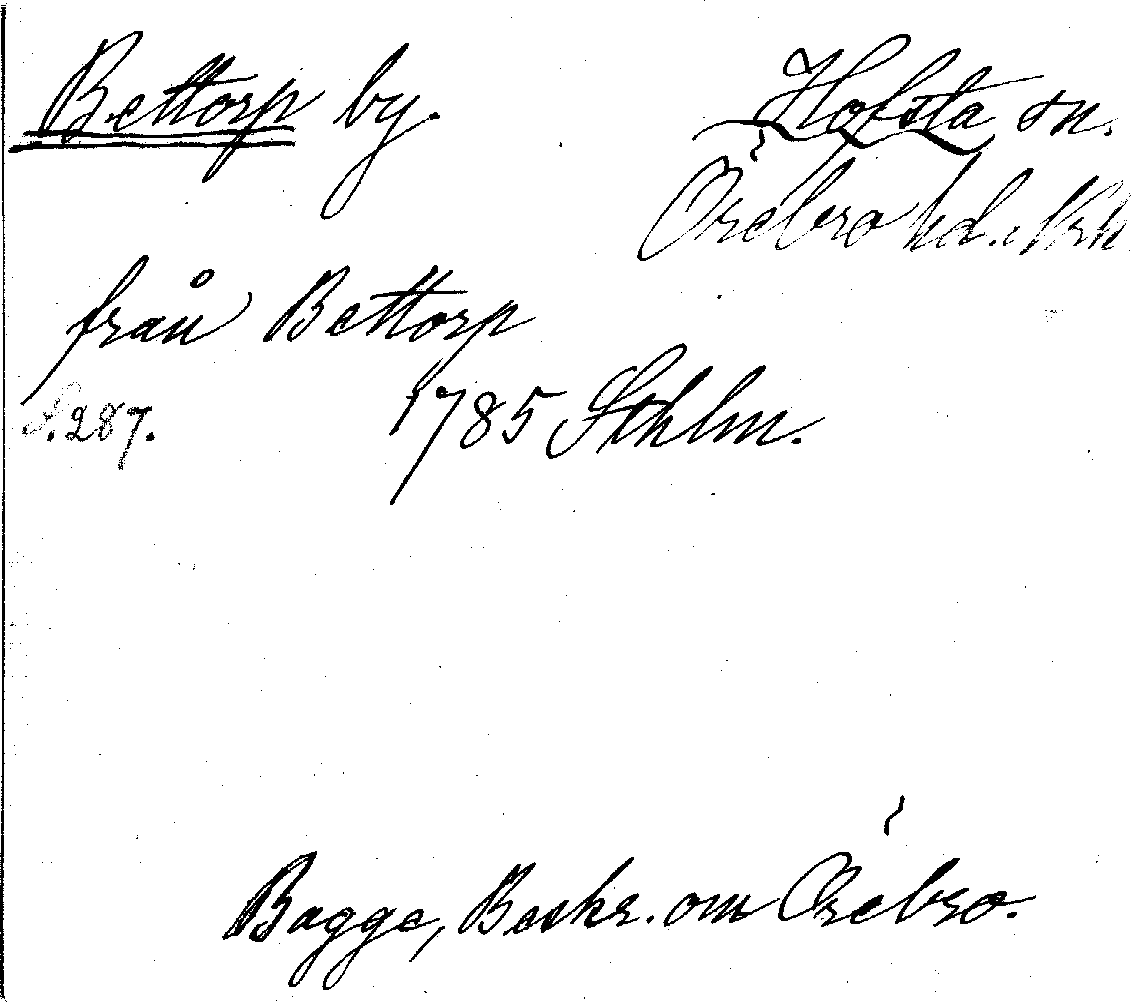 Bettorp by. Hofsta sn.
Örebro hd. Nrk
från Bettorp
S. 287. 1785 Sthlm.
Bagge, Beskr. om Örebro.